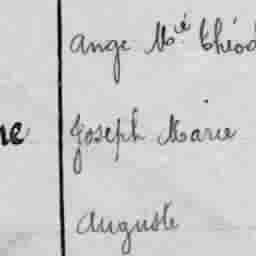 Ange Mié Théod
ne Joseph Marie
Auguste